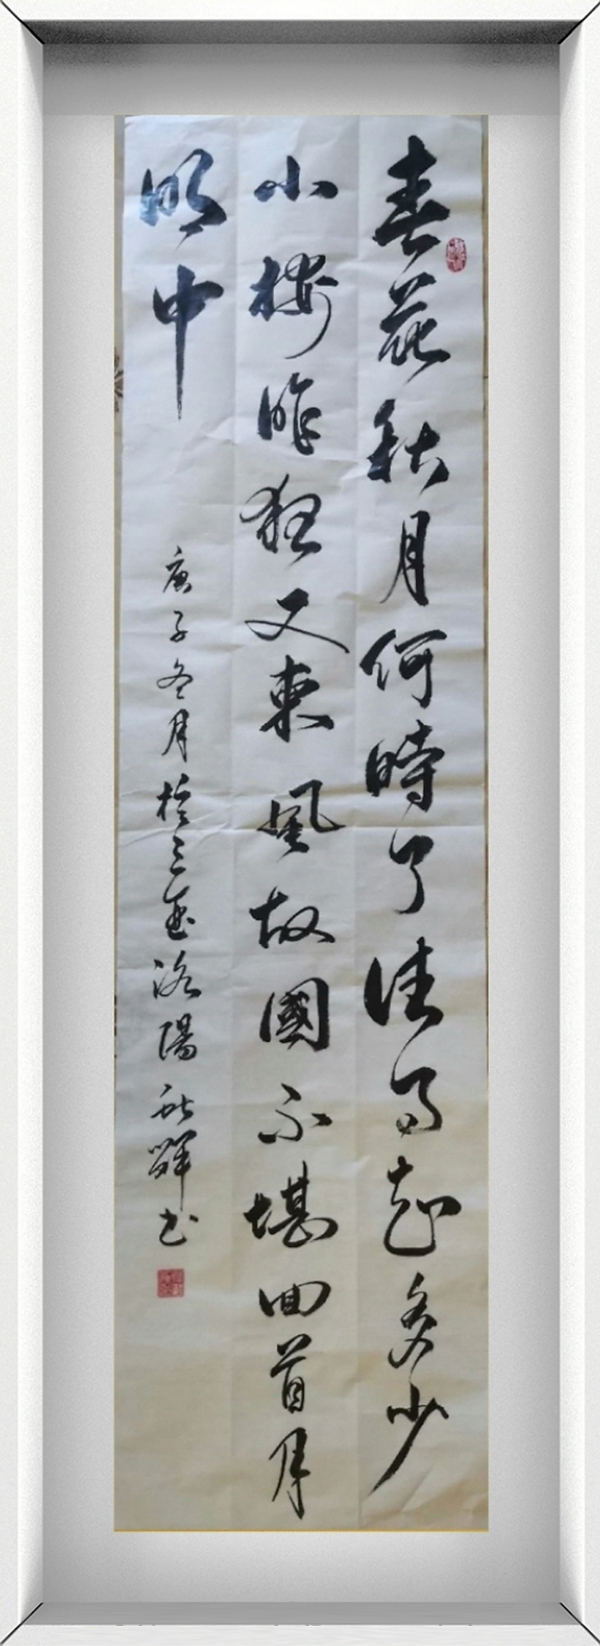 春花秋月何時了往事知多少
小樓昨夜又東風故國不堪回首月
明中
庚子冬月於三亞洛陽輝书